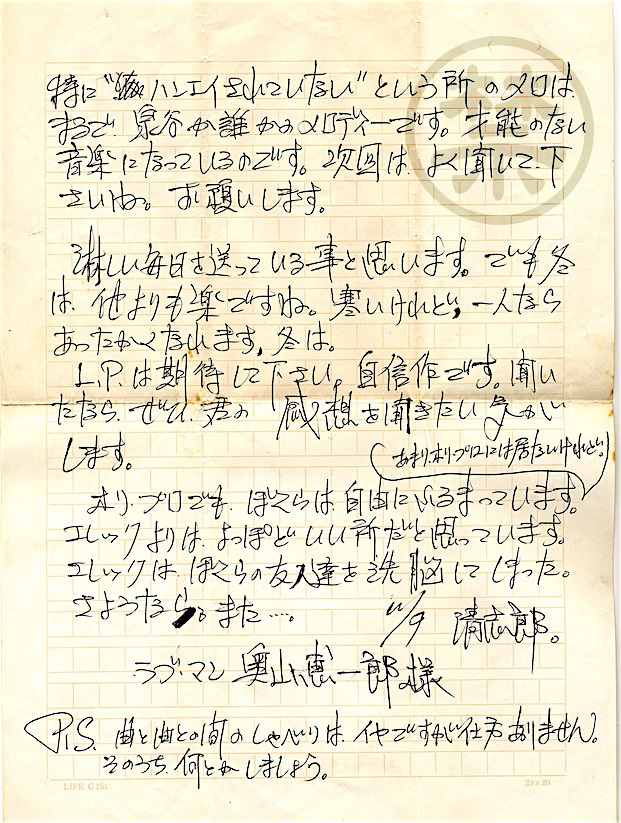 特に"ハンエイされていない"という所のメロは
まるで、泉谷か誰かのメロディーです。才能のない
音楽になっているのです。次回は、よく聞いて下
さいね。お願いします。
淋しい毎日を送っている事と思います。でも冬
は、他よりも楽ですね。寒いけれど、一人なら
あったかくなれます、冬は。
L.P.は期待して下さい。自信作です。聞い
たなら、ぜひ、君の感想を聞きたい気がし
します。
(あまりホリ・プロには居ないけれど。)
ホリ・プロでも、ぼくらは自由にふるまっています。
エレックよりは、よっぽどいい所だと思っています。
エレックは、ぼくらの友人達を洗脳してしまった。
さようなら。また……。
11/9 清志郎。
ラブ・マン 奥山恵一郎様
P.S. 曲と曲との間のしゃべりは、イヤですが仕方ありません。
そのうち、何とかしましょう。
禁
LIFE C.151
20×20